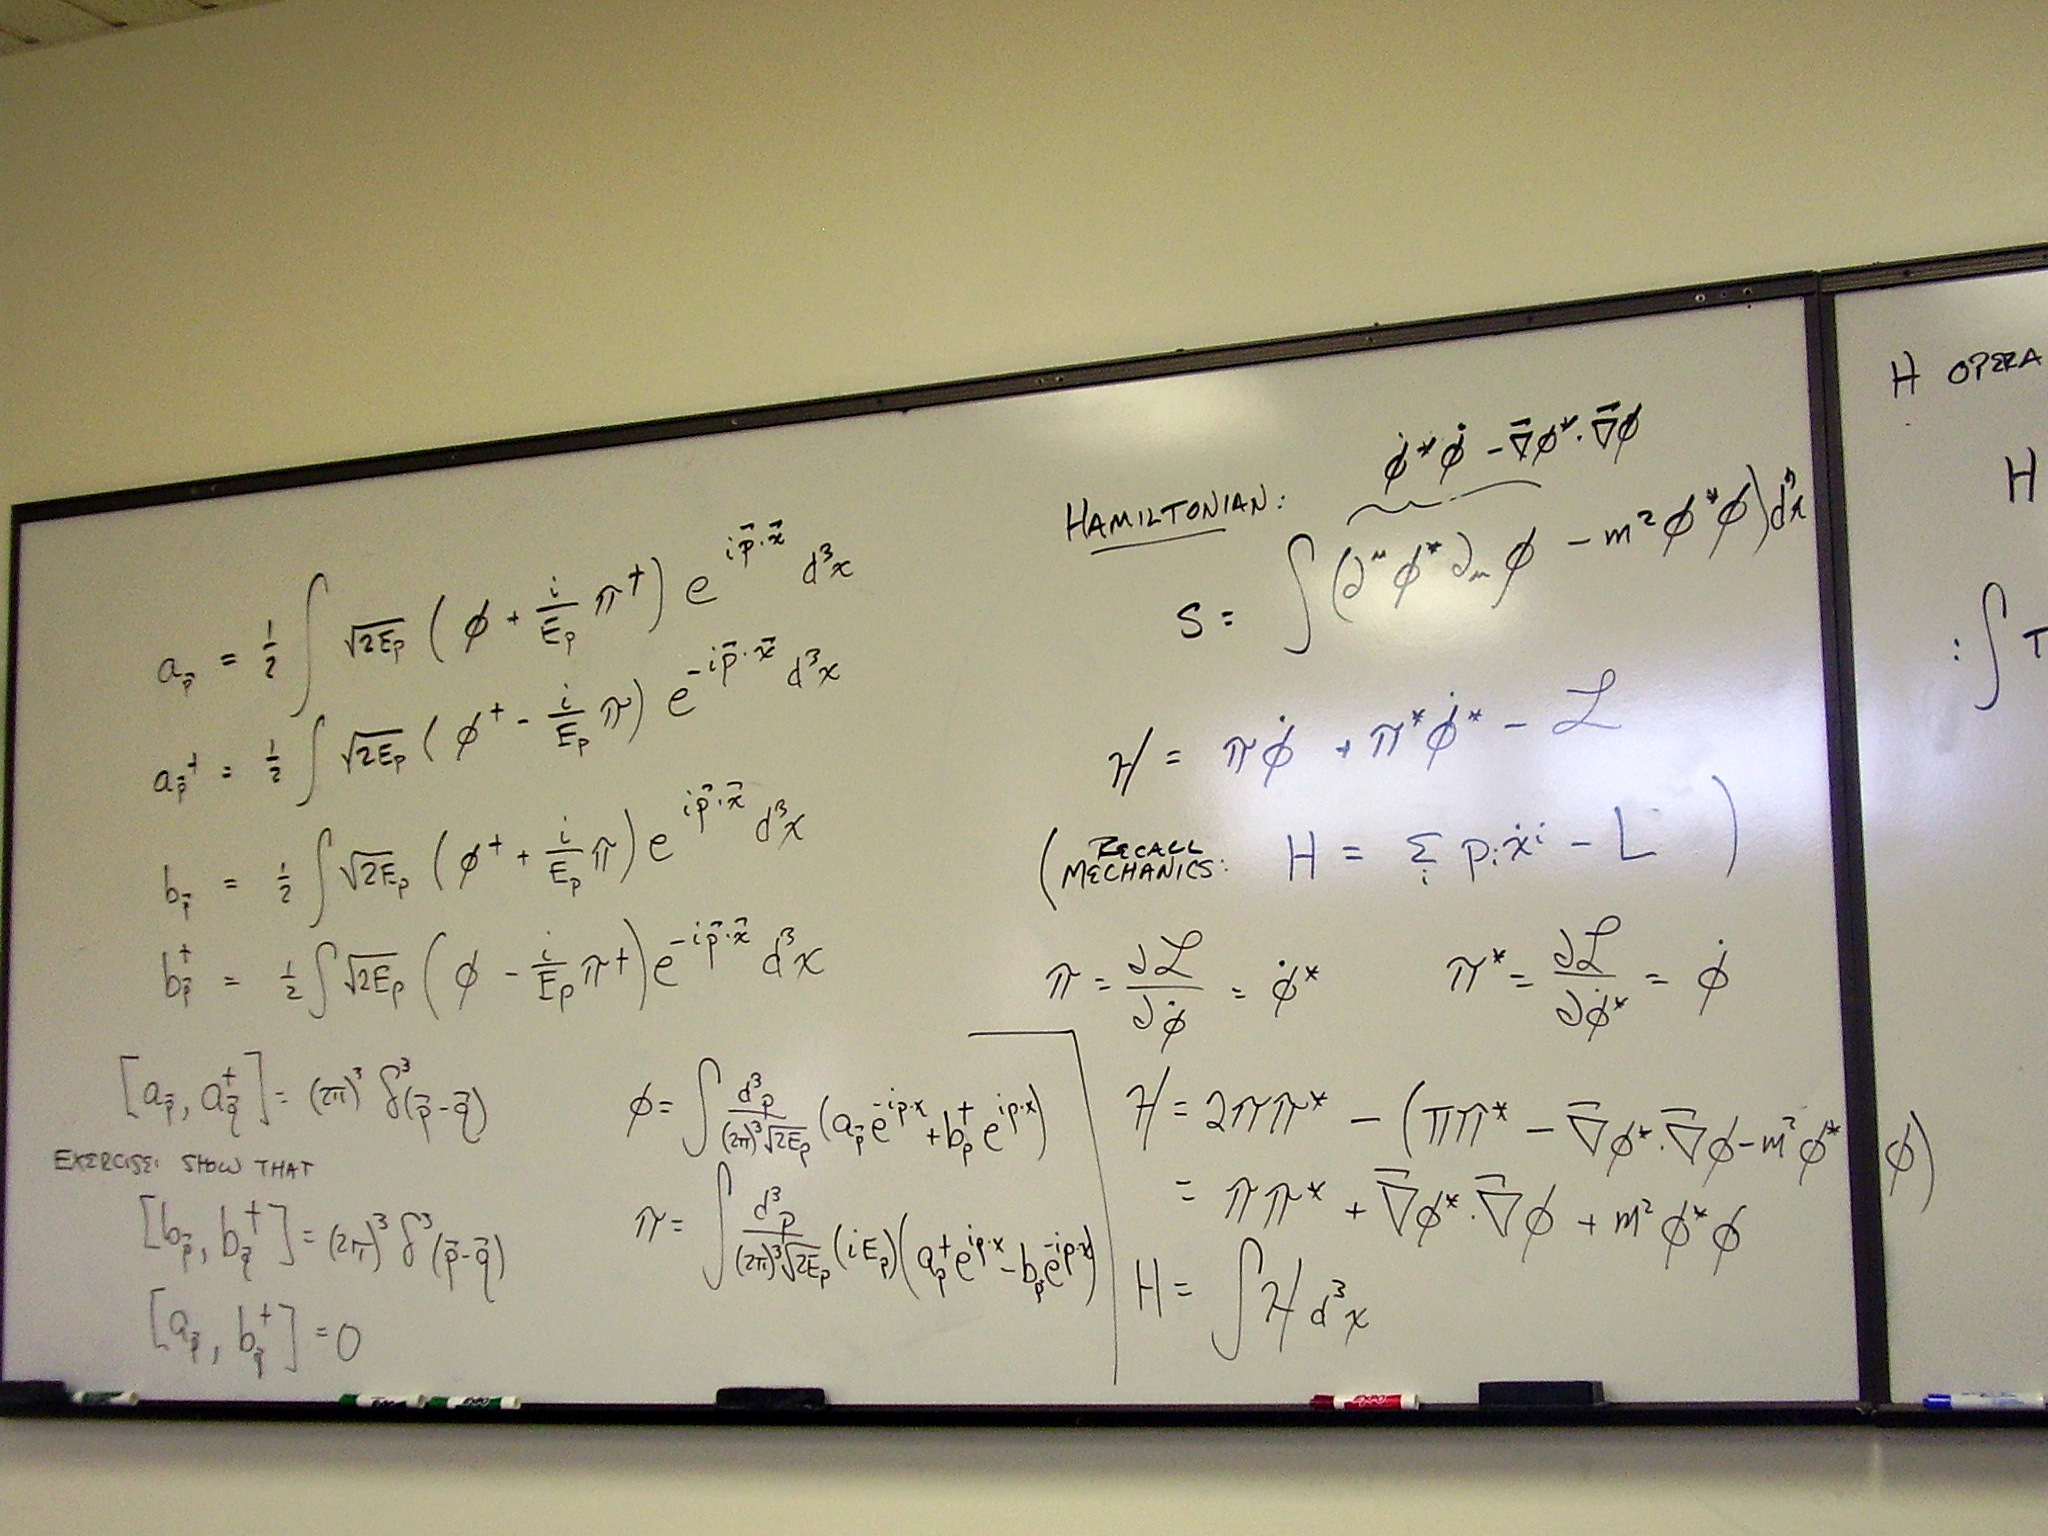 a_p⃗ = 1/2 ∫ √2E_p ( φ + i/E_p π† ) e^{i p⃗·x⃗} d³x
a_p⃗† = 1/2 ∫ √2E_p ( φ† - i/E_p π ) e^{-i p⃗·x⃗} d³x
b_p⃗ = 1/2 ∫ √2E_p ( φ† + i/E_p π ) e^{i p⃗·x⃗} d³x
b_p⃗† = 1/2 ∫ √2E_p ( φ - i/E_p π† ) e^{-i p⃗·x⃗} d³x
[a_p⃗, a_q⃗†] = (2π)³ δ³(p⃗-q⃗)
EXERCISE: SHOW THAT
[b_p⃗, b_q⃗†] = (2π)³ δ³(p⃗-q⃗)
[a_p⃗, b_p⃗†] = 0
φ = ∫ d³p/((2π)³√2E_p) (a_p⃗ e^{-ip·x} + b_p† e^{ip·x})
π = ∫ d³p/((2π)³√2E_p) (iE_p)(a_p† e^{ip·x} - b_p⃗ e^{-ip·x})
HAMILTONIAN:
φ̇*φ̇ - ∇⃗φ*·∇⃗φ
S = ∫ (∂^μ φ* ∂_μ φ - m²φ*φ) d⁴x
ℋ = πφ̇ + π*φ̇* - ℒ
( RECALL MECHANICS: H = Σ_i p_i ẋ^i - L )
π = ∂ℒ/∂φ̇ = φ̇* π* = ∂ℒ/∂φ̇* = φ̇
ℋ = 2ππ* - (ππ* - ∇⃗φ*·∇⃗φ - m²φ*φ)
= ππ* + ∇⃗φ*·∇⃗φ + m²φ*φ
H = ∫ ℋ d³x
H OPERA
H
: ∫ T